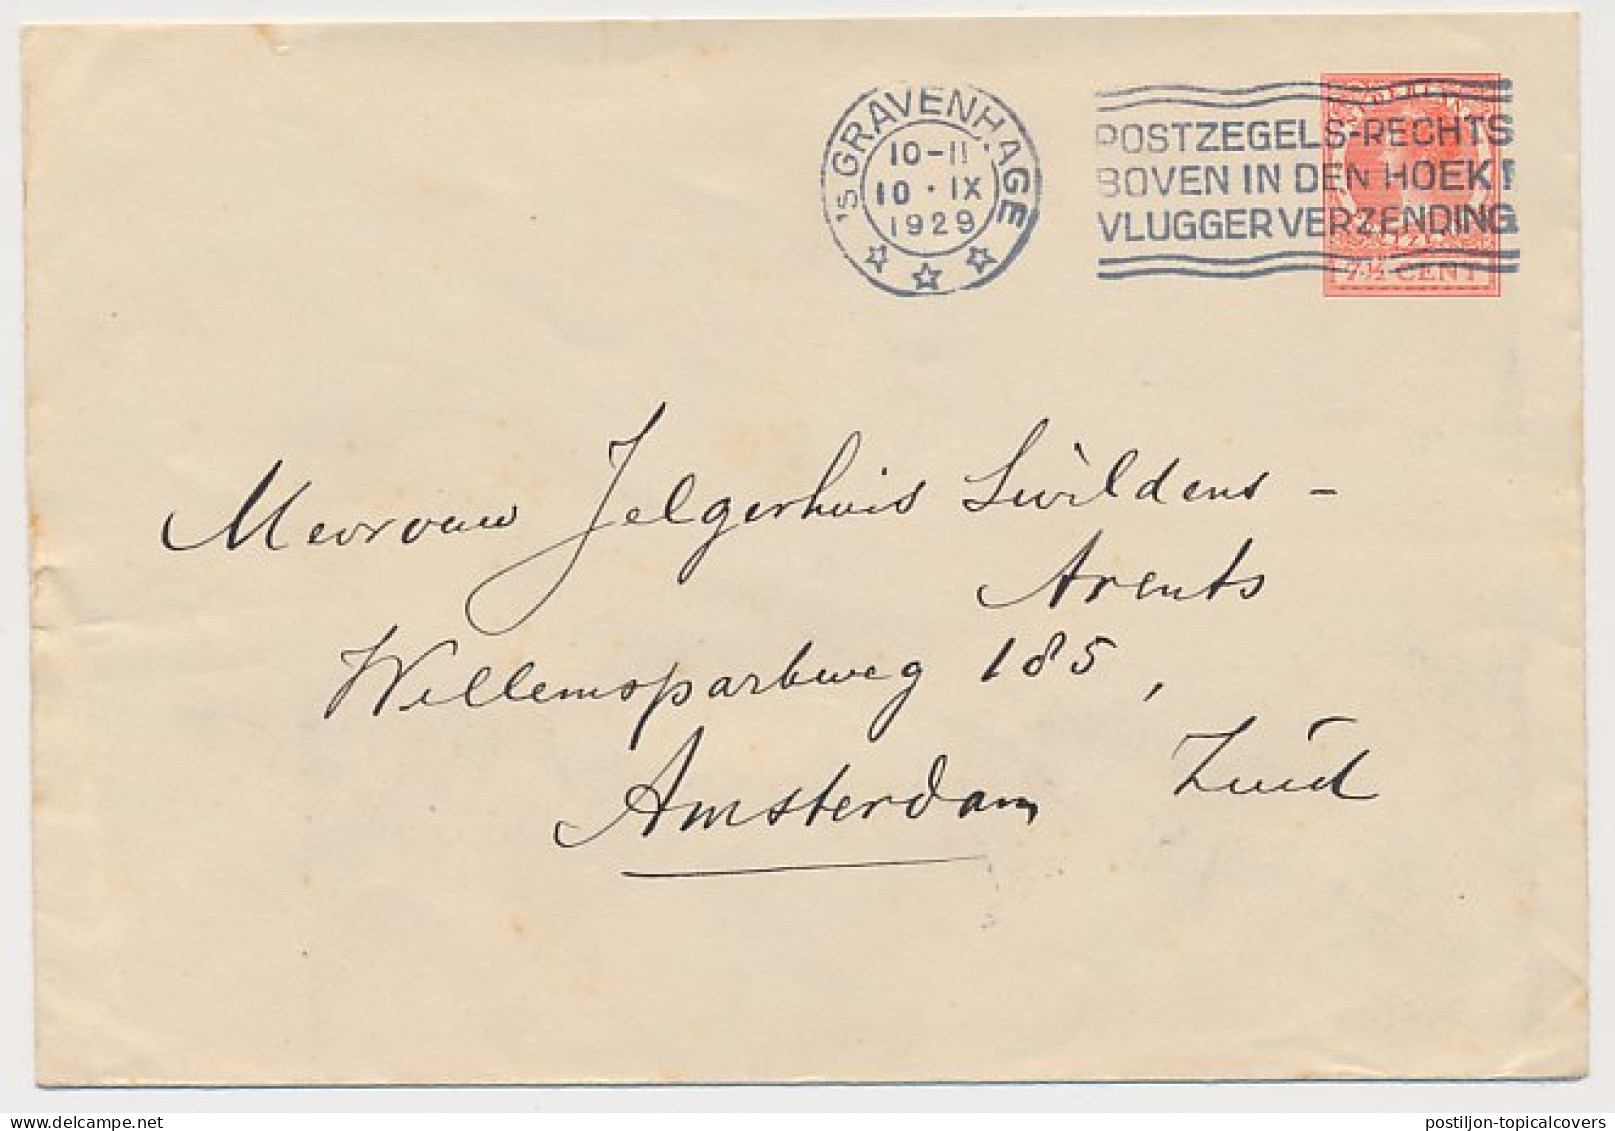 'S GRAVENHAGE
10-11
10·IX
1929
POSTZEGELS-RECHTS
BOVEN IN DEN HOEK!
VLUGGER VERZENDING
7½ CENT
Mevrouw Jelgerhuis Swildens -
Arents
Willemsparkweg 185,
Amsterdam Zuid
postiljon-topicalcovers